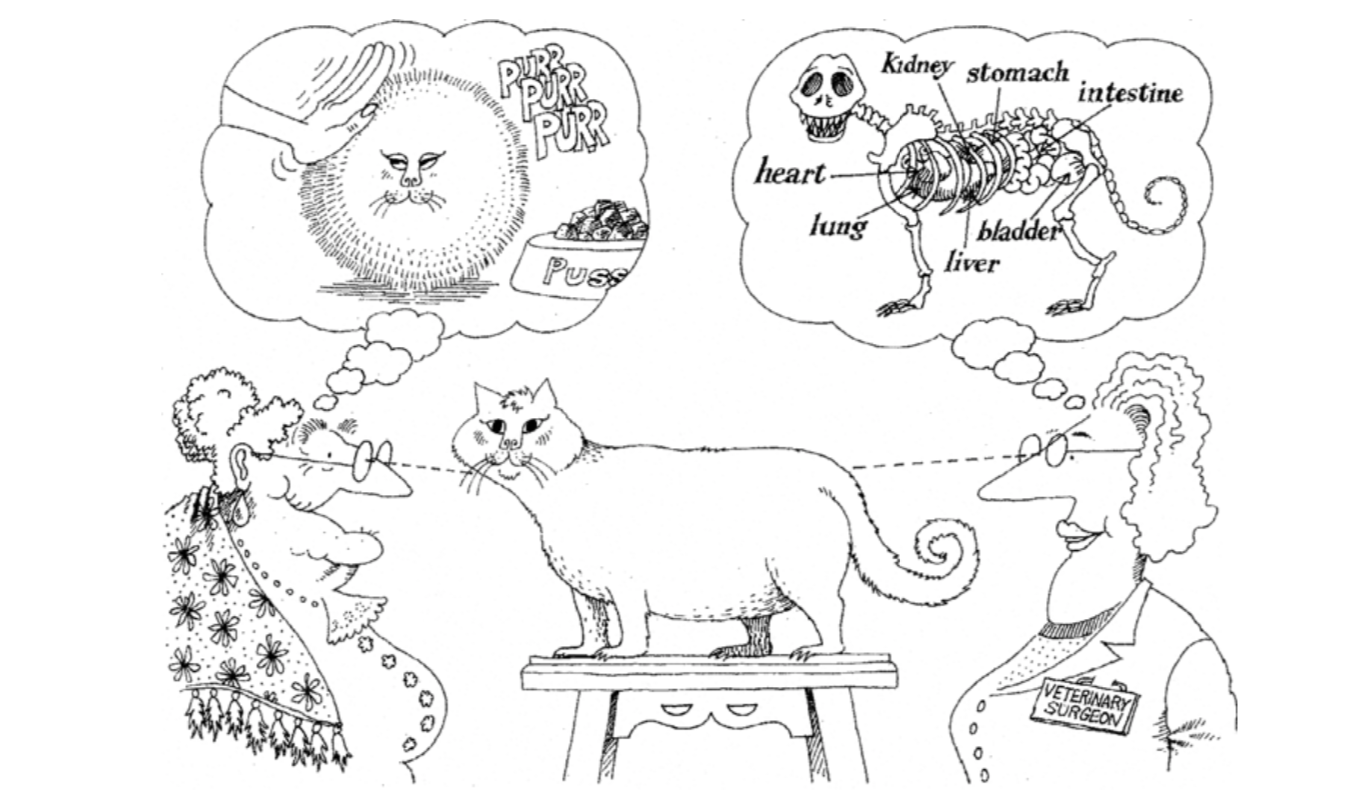 PURR
PURR
PURR
PUSS
Kidney
stomach
intestine
heart
lung
liver
bladder
VETERINARY
SURGEON